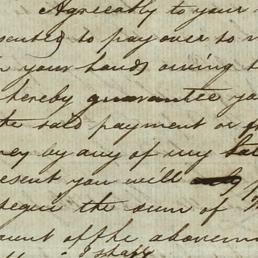 Agreeably to your
sented to pay over to
in your hands owing
hereby guarantee you
the said payment or
ney by any of my
esent you will
sequer the sum of
ount of the abovem
I shall